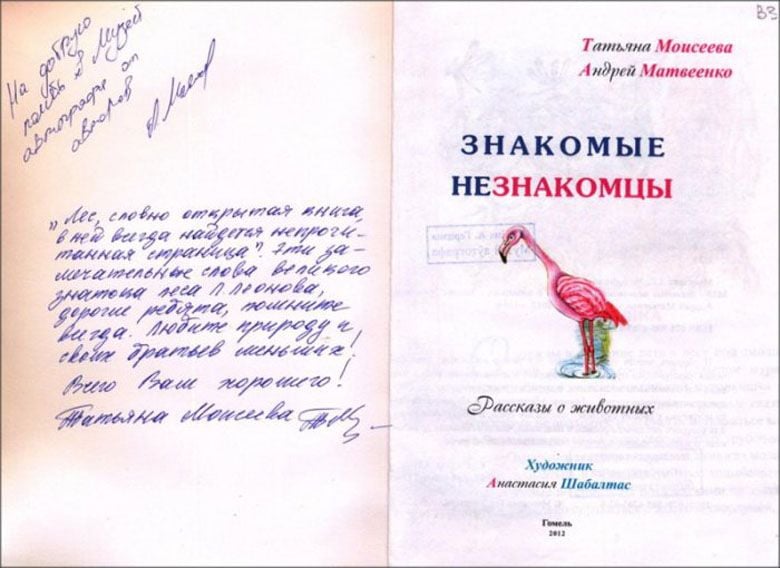 На добрую
память в Музей
автографа от
авторов
„Лес, словно открытая книга,
в ней всегда найдется непрочи-
танная страница". Эти за-
мечательные слова великого
знатока леса Л. Леонова,
дорогие ребята, помните
всегда. Любите природу и
своих братьев меньших!
Всего Вам хорошего!
Татьяна Моисеева
ВЗ
Татьяна Моисеева
Андрей Матвеенко
ЗНАКОМЫЕ
НЕЗНАКОМЦЫ
Рассказы о животных
Художник
Анастасия Шабалтас
Гомель
2012